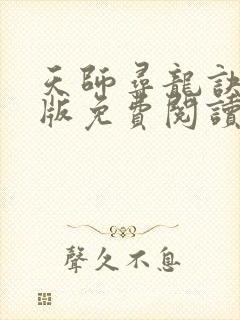 天師尋龍訣
版免費閱讀
聲久不息